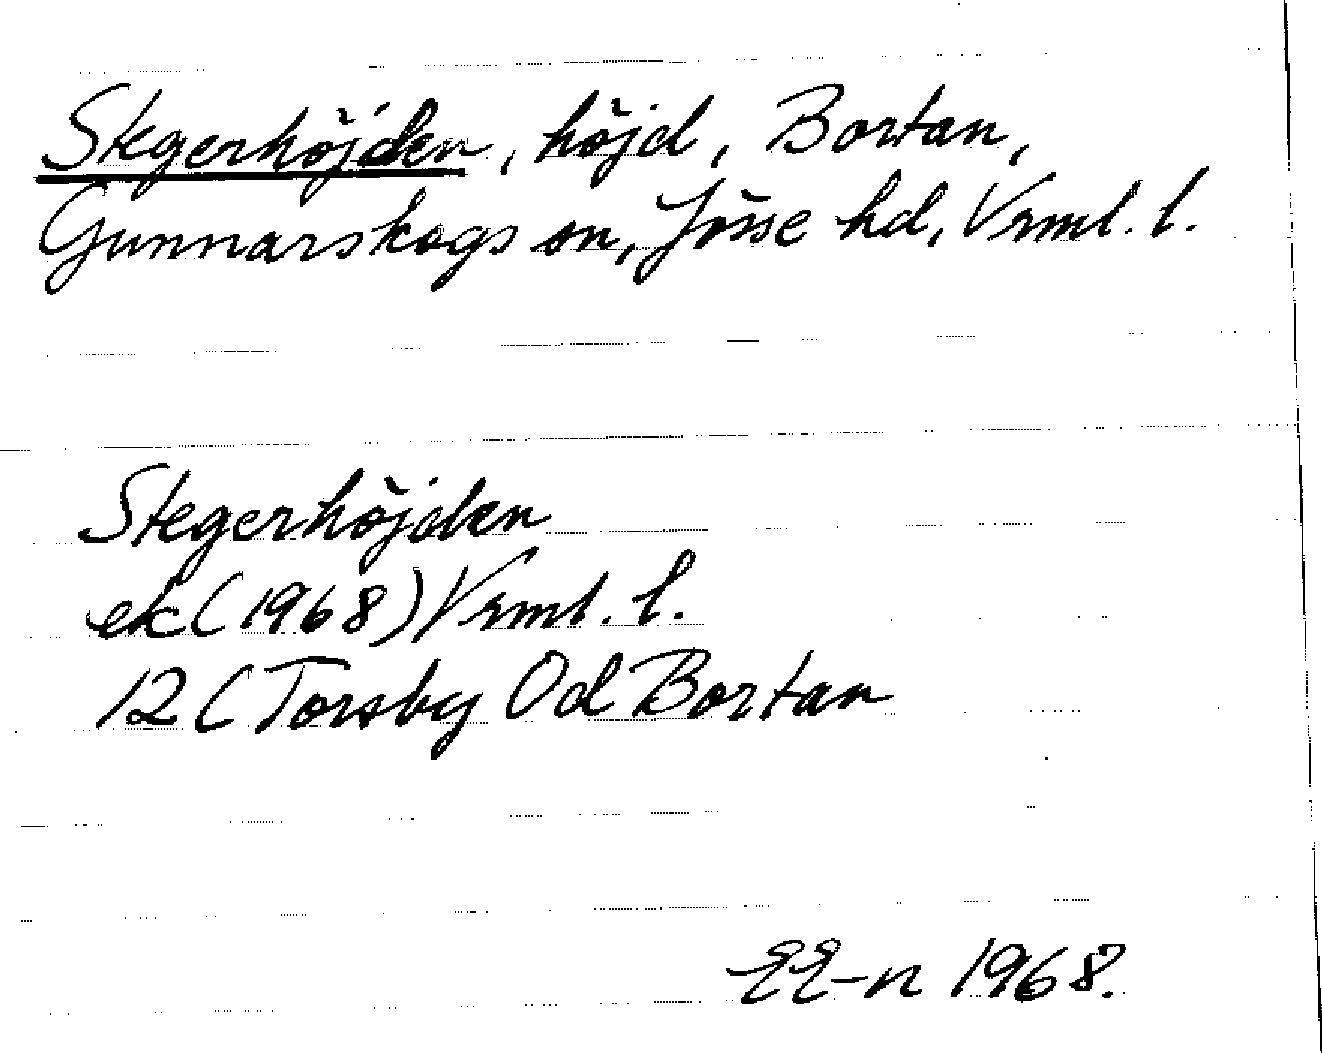 Stegerhöjden, höjd, Bortan,
Gunnarskogs sn, Jösse hd, Vrml. l.
Stegerhöjden
ek (1968) Vrml. l.
12 C Torsby 0d Bortan
EE-n 1968.